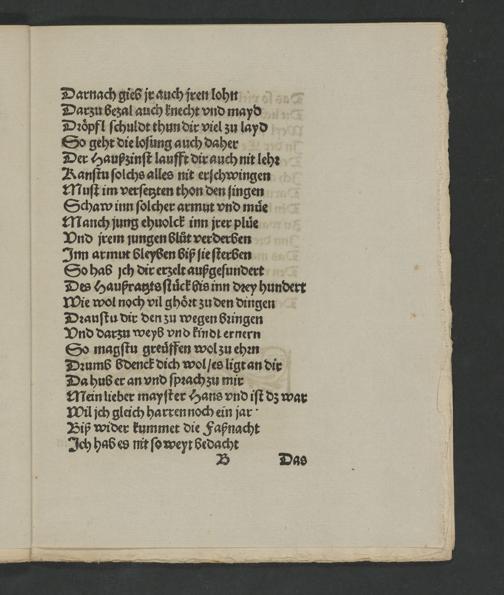 Darnach gieb jr auch jren lohn
Darzu bezal auch knecht vnd mayd
Dröpfl schuldt thun dir viel zu layd
So geht die losung auch daher
Der Haußzinst laufft dir auch nit lehr
Kanstu solchs alles nit erschwingen
Must im versetzten thon den singen
Schaw inn solcher armut vnd müe
Manch jung ehuolck inn jrer plüe
Vnd jrem jungen blüt verderben
Inn armut bleyben biß sie sterben
So hab ich dir erzelt außgesundert
Des Haußratzs stück bis inn drey hundert
Wie wol noch vil ghört zu den dingen
Draustu dir den zu wegen bringen
Vnd darzu weyb vnd kindt ernern
So magstu greüffen wol zu ehrn
Drumb bdenck dich wol/es ligt an dir
Da hub er an vnd sprach zu mir
Mein lieber mayster Hans vnd ist dz war
Wil jch gleich harren noch ein jar
Biß wider kummet die Faßnacht
Jch hab es nit so weyt bedacht
B Das